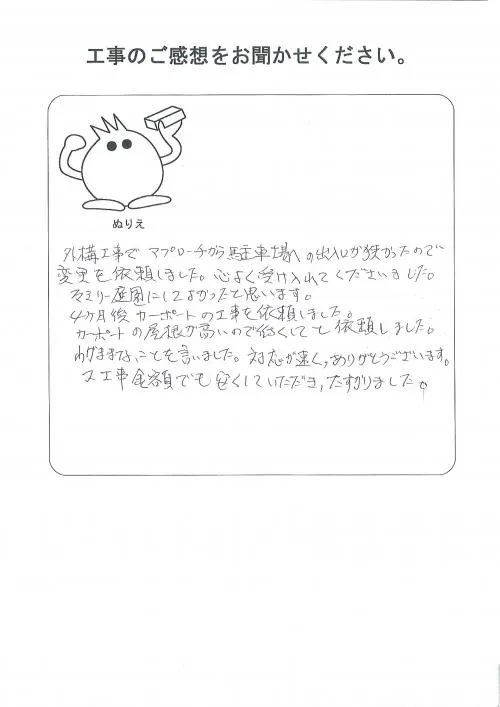 工事のご感想をお聞かせください。
ぬりえ
外構工事で アプローチから駐車場への出入口が狭かったので
変更を依頼しました。心よく受け入れてくださいました。
スミリー庭園にしてよかったと思います。
4ヶ月後 カーポートの工事を依頼しました。
カーポートの屋根が高いので低くしてと依頼しました。
わがままなことを言いました。対応が速く,ありがとうございます。
又工事金額でも安くしていただき,たすかりました。